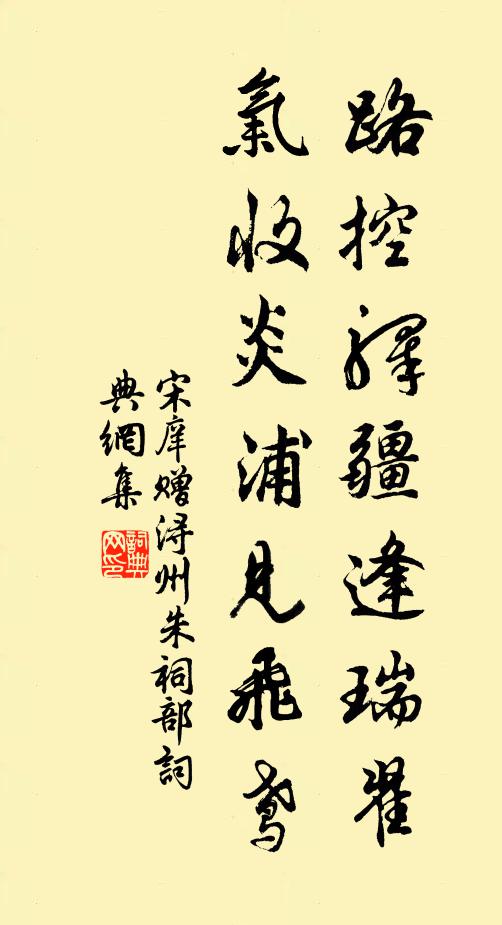 路控譯疆逢瑞翟
氣收炎浦見飛鳶
宋庠贈浔州朱祠部詞
典網集
詞典
网印